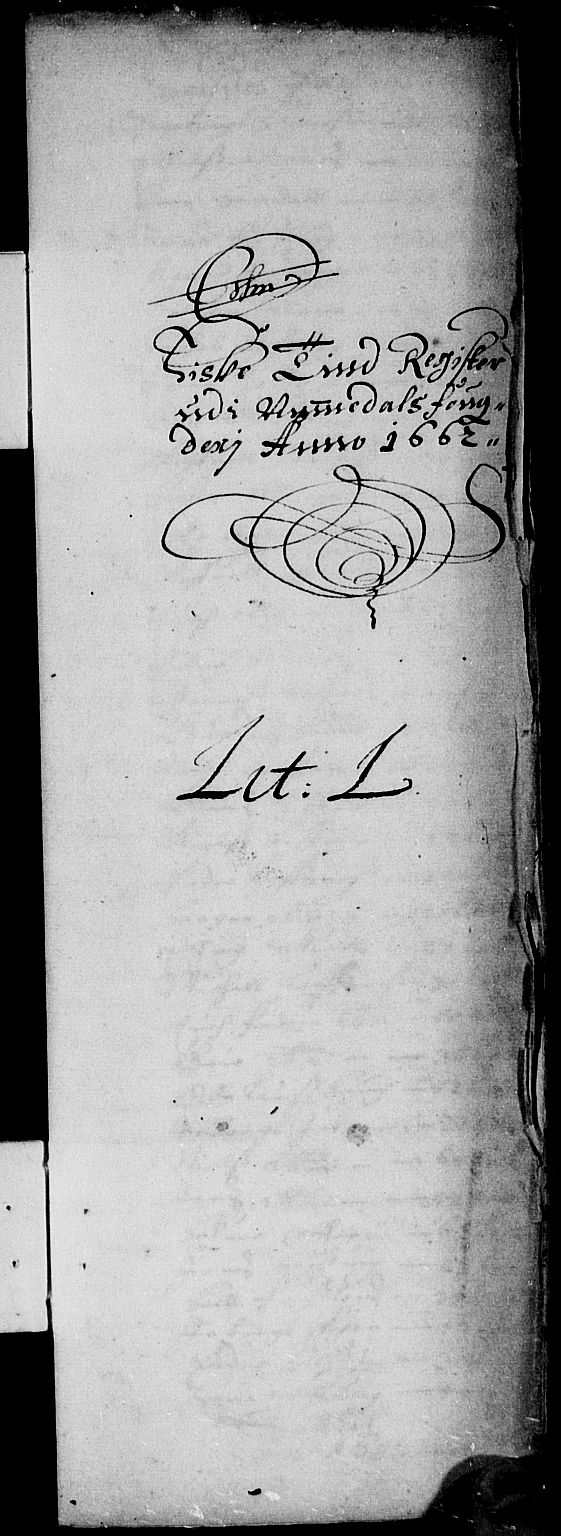 Fiske Tiend Register
udi Nummedals foug-
derj Anno 1662
Lit: L